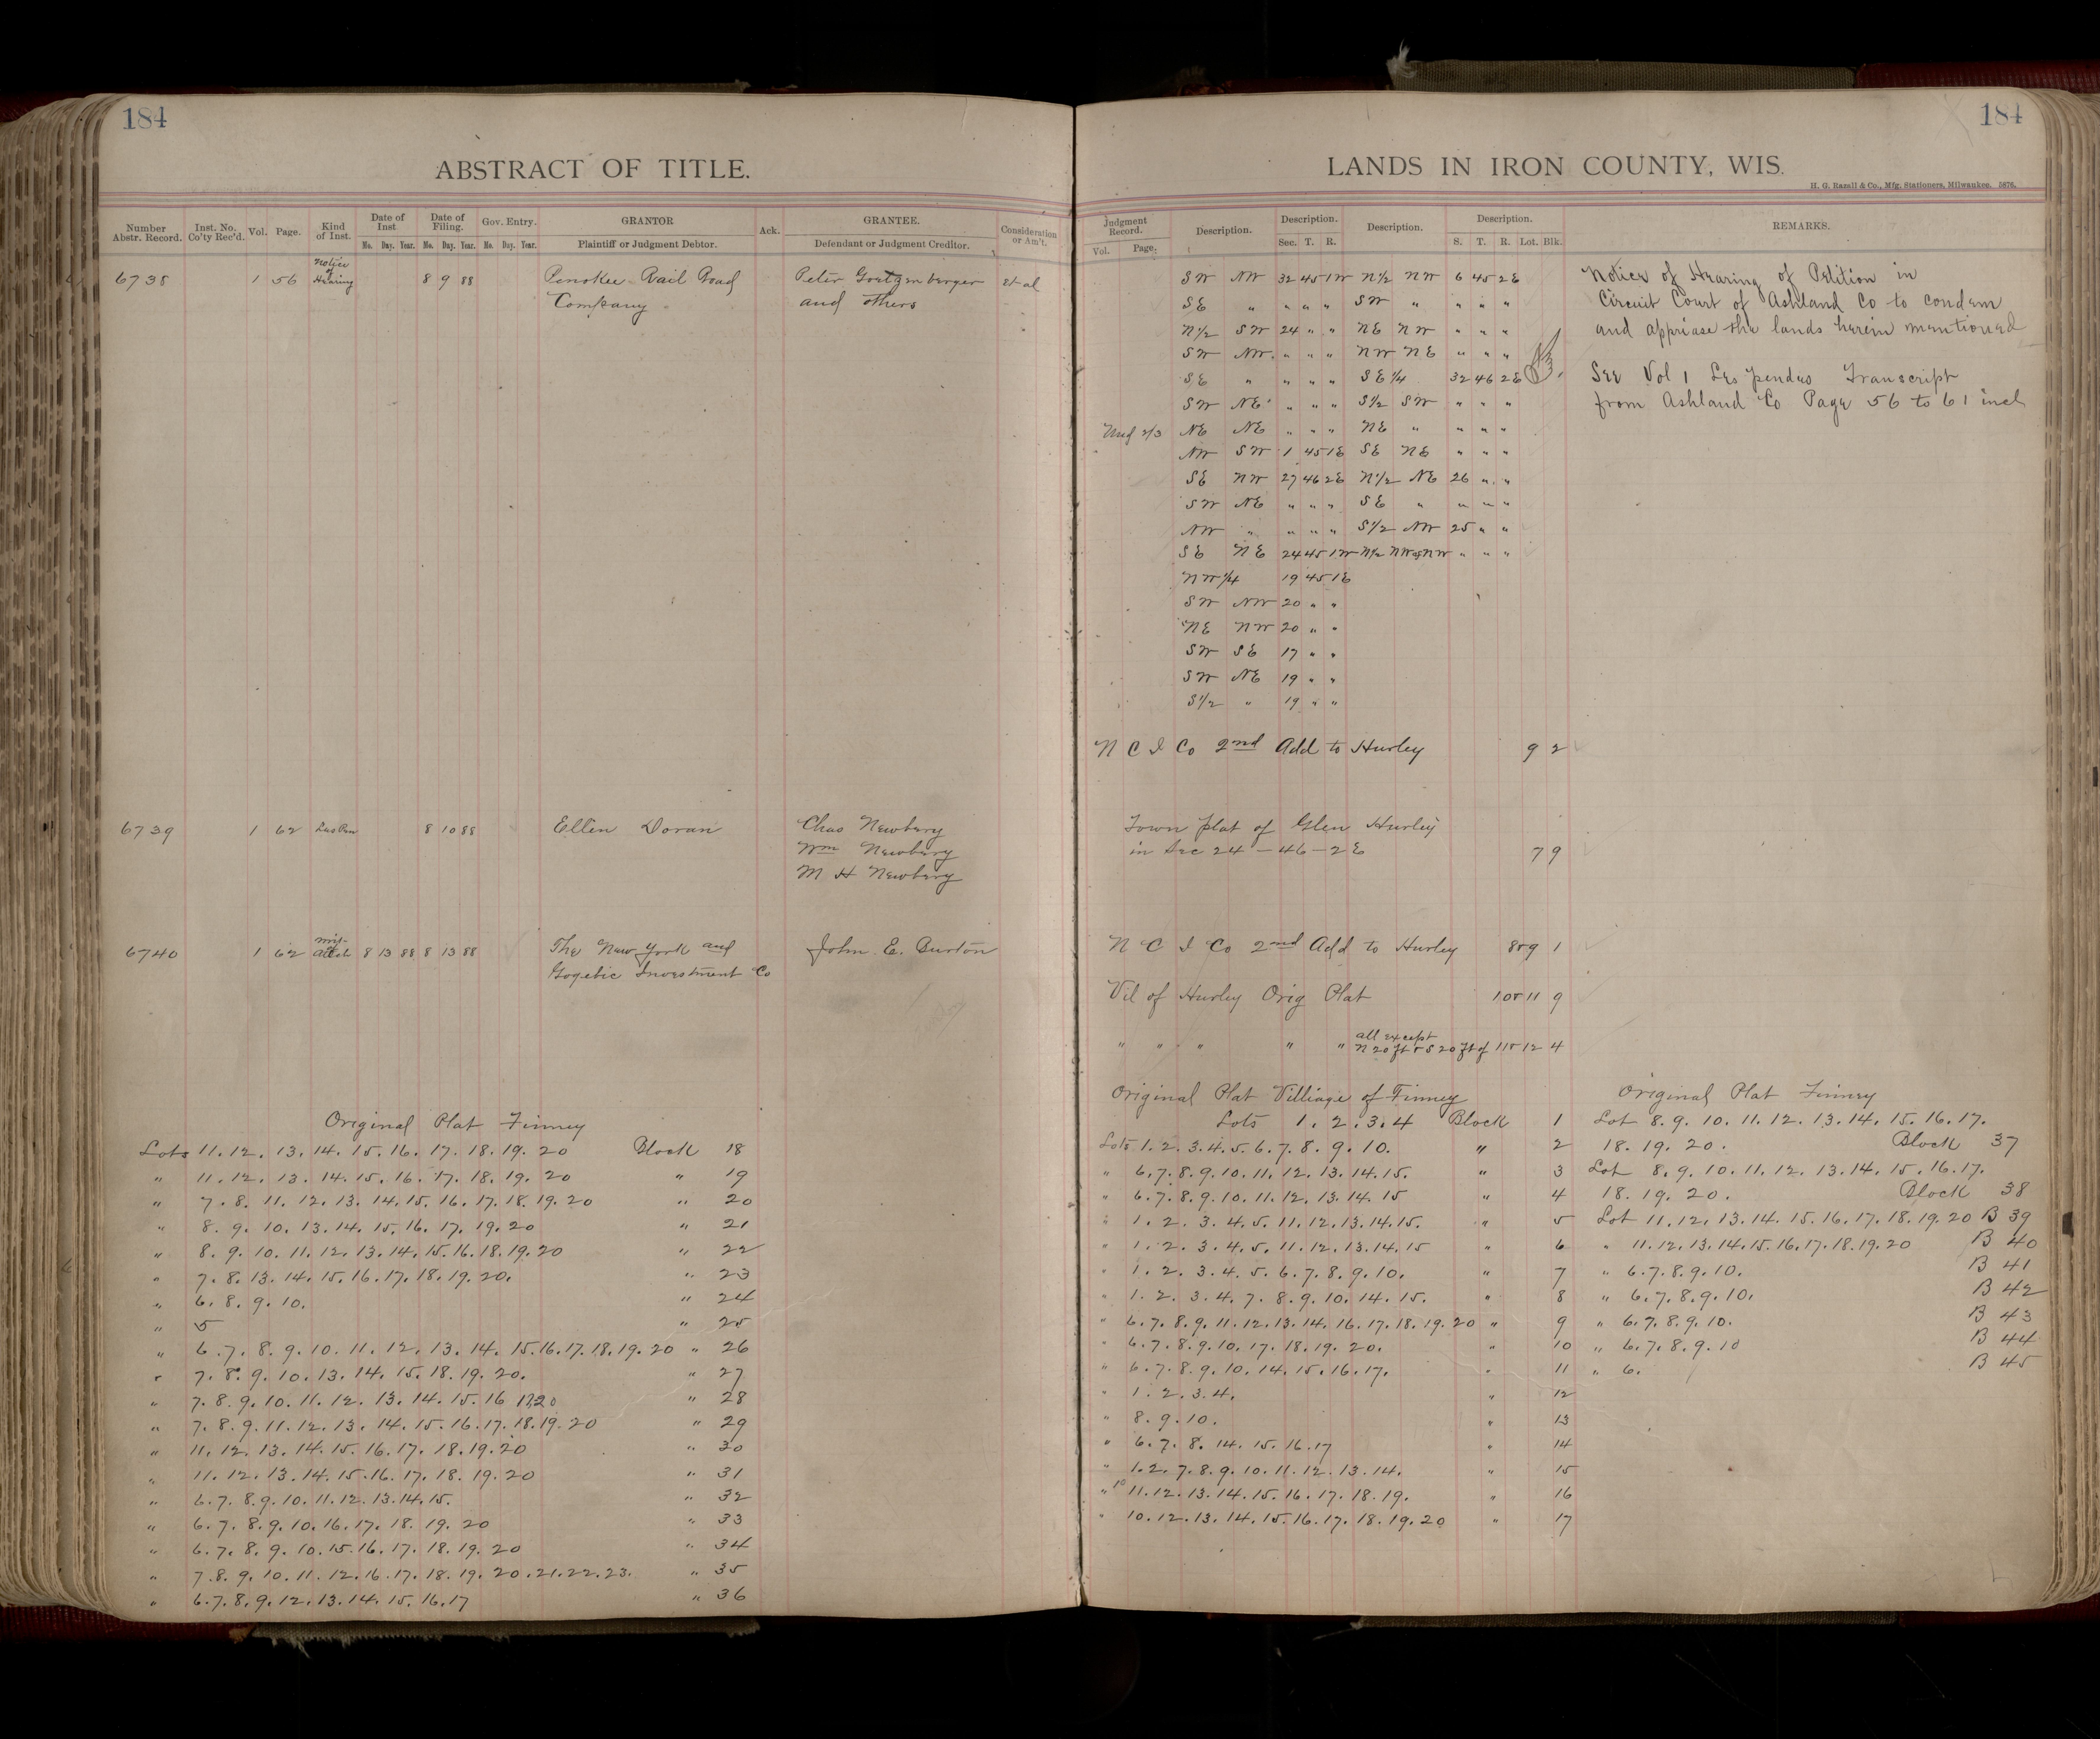 184
ABSTRACT OF TITLE.
Number Abstr. Record. Inst. No. Co'ty Rec'd. Vol. Page. Kind of Inst. Date of Inst Mo. Day. Year. Date of Filing. Mo. Day. Year. Gov. Entry. Mo. Day. Year. GRANTOR Plaintiff or Judgment Debtor. Ack. GRANTEE. Defendant or Judgment Creditor. Consideration or Am't.
6738 1 56 Notice of Hearing 8 9 88 Penokee Rail Road Peter Goetzenberger et al
Company and others
6739 1 62 Lis Pen 8 10 88 Ellen Doran Chas Newbery
Wm Newbery
M H Newbery
6740 1 62 Attch 8 13 88 8 13 88 The New York and John E. Burton
Gogebic Investment Co
Original Plat Finney
Lots 11. 12. 13. 14. 15. 16. 17. 18. 19. 20 Block 18
" 11. 12. 13. 14. 15. 16. 17. 18. 19. 20 " 19
" 7. 8. 11. 12. 13. 14. 15. 16. 17. 18. 19. 20 " 20
" 8. 9. 10. 13. 14. 15. 16. 17. 19. 20 " 21
" 8. 9. 10. 11. 12. 13. 14. 15. 16. 18. 19. 20 " 22
" 7. 8. 13. 14. 15. 16. 17. 18. 19. 20. " 23
" 6. 8. 9. 10. " 24
" 5 " 25
" 6. 7. 8. 9. 10. 11. 12. 13. 14. 15. 16. 17. 18. 19. 20 " 26
" 7. 8. 9. 10. 13. 14. 15. 18. 19. 20. " 27
" 7. 8. 9. 10. 11. 12. 13. 14. 15. 16 " 28
" 7. 8. 9. 11. 12. 13. 14. 15. 16. 17. 18. 19. 20 " 29
" 11. 12. 13. 14. 15. 16. 17. 18. 19. 20 " 30
" 11. 12. 13. 14. 15. 16. 17. 18. 19. 20 " 31
" 6. 7. 8. 9. 10. 11. 12. 13. 14. 15. " 32
" 6. 7. 8. 9. 10. 16. 17. 18. 19. 20 " 33
" 6. 7. 8. 9. 10. 15. 16. 17. 18. 19. 20 " 34
" 7. 8. 9. 10. 11. 12. 16. 17. 18. 19. 20. 21. 22. 23. " 35
" 6. 7. 8. 9. 12. 13. 14. 15. 16. 17 " 36
184
LANDS IN IRON COUNTY, WIS.
H. G. Razall & Co., Mfg. Stationers, Milwaukee. 5876.
Judgment Record. Vol. Page. Description. Description. Sec. T. R. Description. Description. S. T. R. Lot. Blk. REMARKS.
SW NW 32 45 1W N1/2 NW 6 45 2E Notice of Hearing of Petition in
SE " " " " SW " " " " Circuit Court of Ashland Co to condem
N1/2 SW 24 " " NE NW " " " and appriase the lands herein mentioned
SW NW " " " NW NE " " "
SE " " " " SE 1/4 32 46 2E See Vol 1 Les pendes Transcript
SW NE " " " S1/2 SW " " " from Ashland Co Page 56 to 61 incl
Und 2/3 NE NE " " " NE " " " "
NW SW 1 45 1E SE NE " " "
SE NW 27 46 2E N1/2 NE 26 " "
SW NE " " " SE " " " "
NW " " " " S1/2 NW 25 " "
SE NE 24 45 1W N1/2 NW of NW " " "
NW 1/4 19 45 1E
SW NW 20 " "
NE NW 20 " "
SW SE 17 " "
SW NE 19 " "
S1/2 " 19 " "
N C I Co 2nd Add to Hurley 9 2
Town plat of Glen Hurley
in Sec 24 - 46 - 2E 7 9
N C I Co 2nd Add to Hurley 8 & 9 1
Vil of Hurley Orig Plat 10 & 11 9
" " " " " all except
N 20 ft & S 20 ft of 11 & 12 4
Original Plat Villiage of Finney
Lots 1. 2. 3. 4 Block 1
Lots 1. 2. 3. 4. 5. 6. 7. 8. 9. 10. " 2
" 6. 7. 8. 9. 10. 11. 12. 13. 14. 15. " 3
" 6. 7. 8. 9. 10. 11. 12. 13. 14. 15 " 4
" 1. 2. 3. 4. 5. 11. 12. 13. 14. 15. " 5
" 1. 2. 3. 4. 5. 11. 12. 13. 14. 15 " 6
" 1. 2. 3. 4. 5. 6. 7. 8. 9. 10. " 7
" 1. 2. 3. 4. 7. 8. 9. 10. 14. 15. " 8
" 6. 7. 8. 9. 11. 12. 13. 14. 16. 17. 18. 19. 20 " 9
" 6. 7. 8. 9. 10. 17. 18. 19. 20. " 10
" 6. 7. 8. 9. 10. 14. 15. 16. 17. " 11
" 1. 2. 3. 4. " 12
" 8. 9. 10. " 13
" 6. 7. 8. 14. 15. 16. 17 " 14
" 1. 2. 7. 8. 9. 10. 11. 12. 13. 14. " 15
" 10 11. 12. 13. 14. 15. 16. 17. 18. 19. " 16
" 10. 12. 13. 14. 15. 16. 17. 18. 19. 20 " 17
Original Plat Finney
Lot 8. 9. 10. 11. 12. 13. 14. 15. 16. 17.
18. 19. 20. Block 37
Lot 8. 9. 10. 11. 12. 13. 14. 15. 16. 17.
18. 19. 20. Block 38
Lot 11. 12. 13. 14. 15. 16. 17. 18. 19. 20 B 39
" 11. 12. 13. 14. 15. 16. 17. 18. 19. 20 B 40
" 6. 7. 8. 9. 10. B 41
" 6. 7. 8. 9. 10. B 42
" 6. 7. 8. 9. 10. B 43
" 6. 7. 8. 9. 10 B 44
" 6. B 45